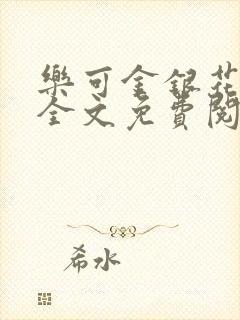 樂可金銀花
全文免費閱
希水